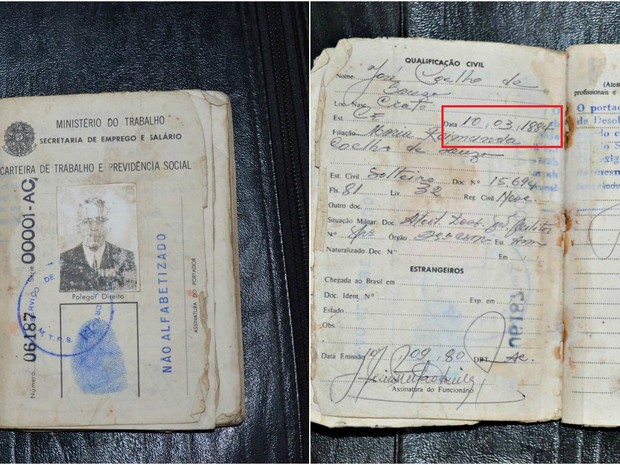 MINISTÉRIO DO TRABALHO
SECRETARIA DE EMPREGO E SALÁRIO
CARTEIRA DE TRABALHO E PREVIDÊNCIA SOCIAL
Polegar Direito
NÃO ALFABETIZADO
ASSINATURA DO PORTADOR
Número 06187 Série 00001-AC
M.T.P.S.
QUALIFICAÇÃO CIVIL
Nome José Coelho de
Souza
Loc. Nasc. Crato
Est. CE Data 10.03.1884
Filiação Maria Raimunda
Coelho de Souza
Est. Civil Solteiro Doc Nº 15.694
Fls. 81 Liv. 32 Reg. Civil Nasc.
Outro doc.
Situação Militar: Doc.
Nº Órgão Est.
Naturalizado Dec. Nº Em
ESTRANGEIROS
Chegada ao Brasil em
Doc. Ident. Nº Exp. em
Estado
Obs.
Data Emissão 09, 80 DRT Ac.
Assinatura do Funcionário
06187
profissionais e
O porta
de Desol